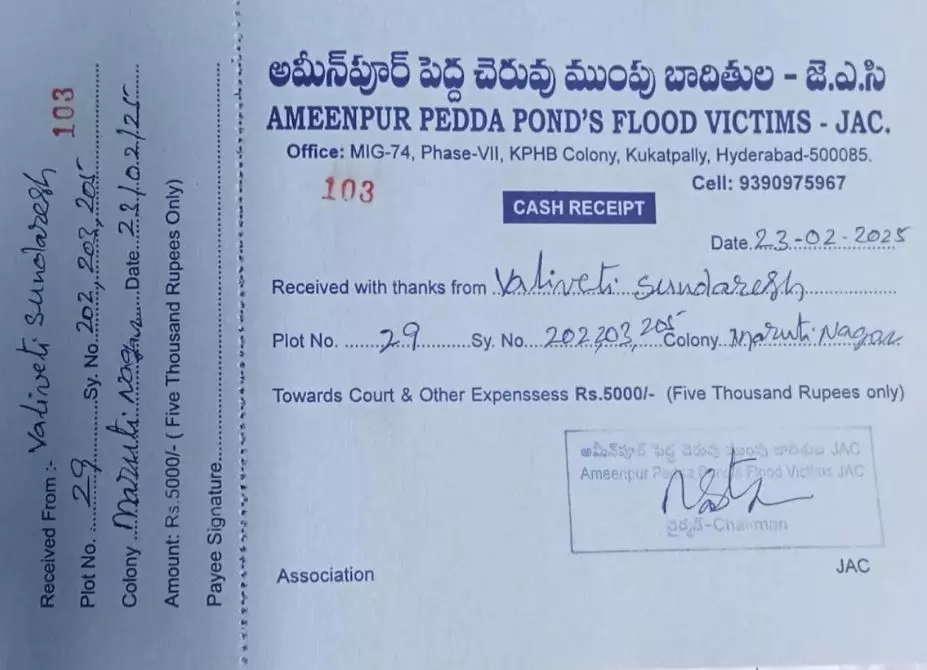 అమీన్‌పూర్ పెద్ద చెరువు ముంపు బాదితుల - జె.ఎ.సి
AMEENPUR PEDDA POND'S FLOOD VICTIMS - JAC.
Office: MIG-74, Phase-VII, KPHB Colony, Kukatpally, Hyderabad-500085.
Cell: 9390975967
103
CASH RECEIPT
Date. 23-02-2025
Received with thanks from Valiveti Sundaresh
Plot No. 29 Sy. No. 202,203, 205 Colony Maruti Nagar
Towards Court & Other Expenssess Rs.5000/- (Five Thousand Rupees only)
అమీన్‌పూర్ పెద్ద చెరువు ముంపు బాదితుల JAC
Ameenpur Pedda Pond's Flood Victims JAC
ఛైర్మన్-Chairman
Association JAC
103
Received From :- Valiveti Sundaresh
Plot No. 29 Sy. No. 202, 203, 205
Colony Maruti Nagar Date. 23/02/25
Amount: Rs.5000/- ( Five Thousand Rupees Only)
Payee Signature